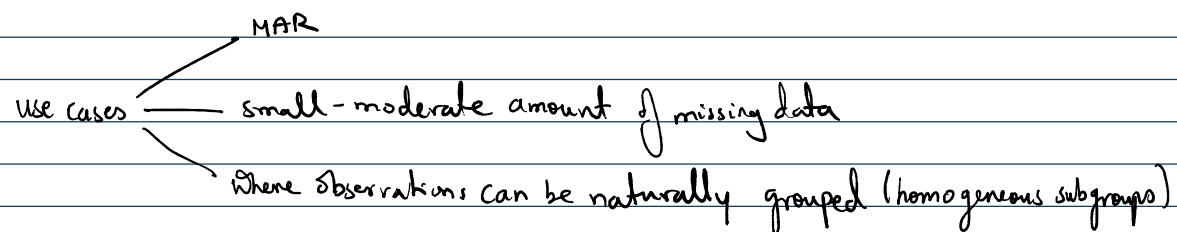 MAR
use cases
small-moderate amount of missing data
Where observations can be naturally grouped (homogeneous subgroups)